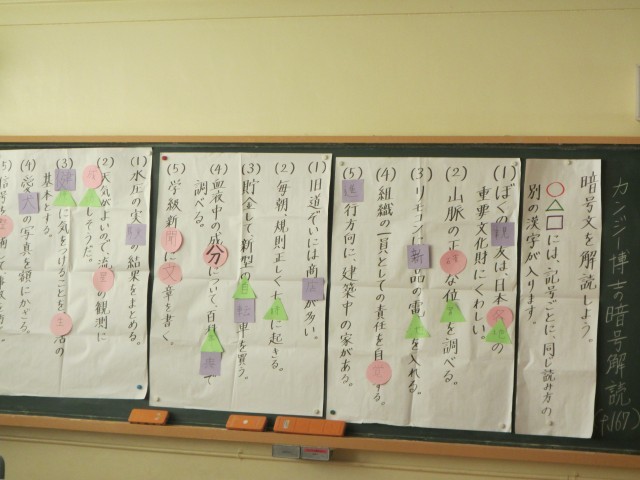 カンジー博士の暗号解読
(P.167)
暗号文を解読しよう。
○△□には、記号ごとに、同じ読み方の
別の漢字が入ります。
(1) ぼくの親友は、日本の
重要文化財にくわしい。
(2) 山脈の正な位を調べる。
(3) リモコンに新品の電を入れる。
(4) 組織の一員としての責任を自する。
(5) 進行方向に、建築中の家がある。
(1) 旧道ぞいには商が多い。
(2) 毎朝、規則正しくに起きる。
(3) 貯金して新型の転車を買う。
(4) 血液中の成分について、百で
調べる。
(5) 学級新に文章を書く。
(1) 水圧の実の結果をまとめる。
(2) 天気がよいので、流の観測に
しそうだ。
(3) に気をつけることを、生活の
基本とする。
(4) 愛犬の写真を額にかざる。
(5)